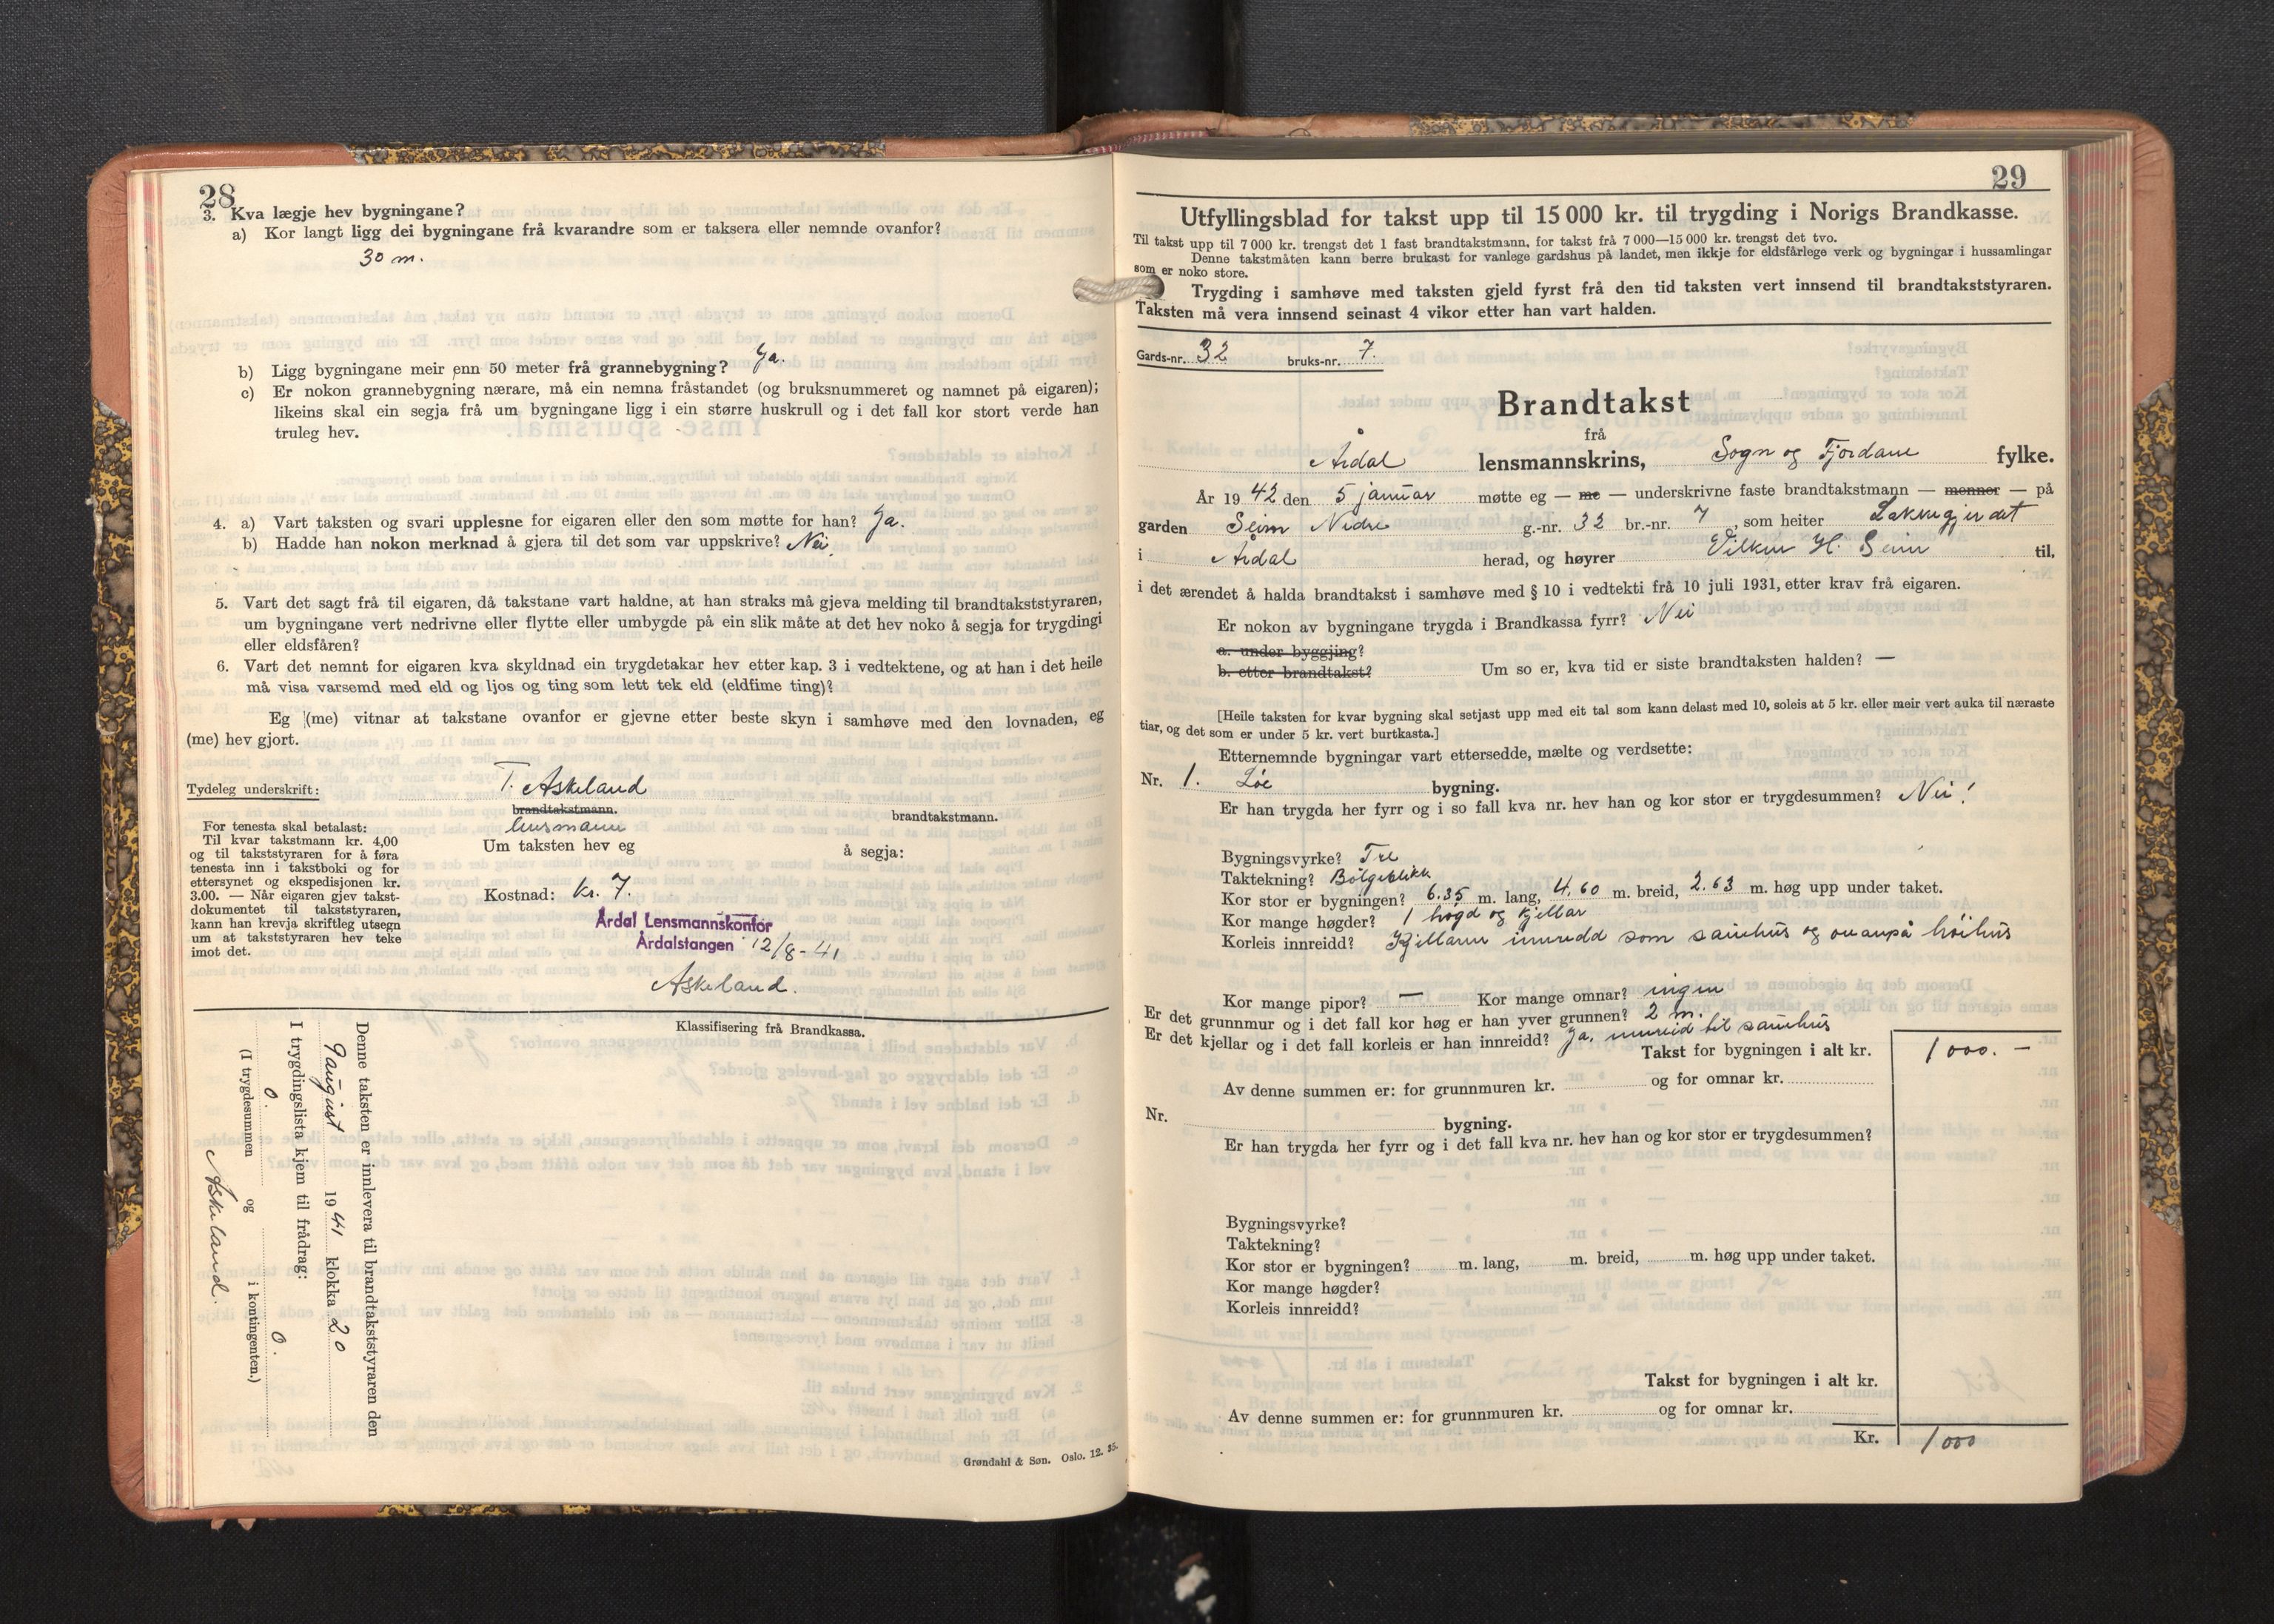 28
3. Kva lægje hev bygningane?
a) Kor langt ligg dei bygningane frå kvarandre som er taksera eller nemnde ovanfor?
30 m.
b) Ligg bygningane meir enn 50 meter frå grannebygning? Ja.
c) Er nokon grannebygning nærare, må ein nemna fråstandet (og bruksnummeret og namnet på eigaren);
likeins skal ein segja frå um bygningane ligg i ein større huskrull og i det fall kor stort verde han
truleg hev.
4. a) Vart taksten og svari upplesne for eigaren eller den som møtte for han? Ja.
b) Hadde han nokon merknad å gjera til det som var uppskrive? Nei
5. Vart det sagt frå til eigaren, då takstane vart haldne, at han straks må gjeva melding til brandtakststyraren,
um bygningane vert nedrivne eller flytte eller umbygde på ein slik måte at det hev noko å segja for trygdingi
eller eldsfåren?
6. Vart det nemnt for eigaren kva skyldnad ein trygdetakar hev etter kap. 3 i vedtektene, og at han i det heile
må visa varsemd med eld og ljos og ting som lett tek eld (eldfime ting)?
Eg (me) vitnar at takstane ovanfor er gjevne etter beste skyn i samhøve med den lovnaden, eg
(me) hev gjort.
Tydeleg underskrift: T. Askeland
brandtakstmann. brandtakstmann.
lensmann
Um taksten hev eg å segja:
For tenesta skal betalast:
Til kvar takstmann kr. 4,00
og til takststyraren for å føra
tenesta inn i takstboki og for
ettersynet og ekspedisjonen kr.
3.00. — Når eigaren gjev takst-
dokumentet til takststyraren,
kann han krevja skriftleg utsegn
um at takststyraren hev teke
imot det.
Kostnad: Kr. 7.
Årdal Lensmannskontor
Årdalstangen 12/8-41
Askeland.
Klassifisering frå Brandkassa.
Denne taksten er innlevera til brandtakststyraren den
9 august 1941 klokka 20
I trygdingslista kjem til frådrag:
0. 0.
(I trygdesummen og i kontingenten.)
Askeland.
Grøndahl & Søn. Oslo. 12. 35.
29
Utfyllingsblad for takst upp til 15 000 kr. til trygding i Norigs Brandkasse.
Til takst upp til 7 000 kr. trengst det 1 fast brandtakstmann, for takst frå 7 000—15 000 kr. trengst det tvo.
Denne takstmåten kann berre brukast for vanlege gardshus på landet, men ikkje for eldsfårlege verk og bygningar i hussamlingar
som er noko store.
Trygding i samhøve med taksten gjeld fyrst frå den tid taksten vert innsend til brandtakststyraren.
Taksten må vera innsend seinast 4 vikor etter han vart halden.
Gards-nr. 32 bruks-nr. 7.
Brandtakst
frå
Årdal lensmannskrins, Sogn og Fjordane fylke.
År 1942 den 5 januar møtte eg — me — underskrivne faste brandtakstmann — menner — på
garden Seim Nedre g.-nr. 32 br.-nr. 7, som heiter Løkkegjerdet
i Årdal herad, og høyrer Vilken H. Seim til,
i det ærendet å halda brandtakst i samhøve med § 10 i vedtekti frå 10 juli 1931, etter krav frå eigaren.
Er nokon av bygningane trygda i Brandkassa fyrr? Nei
a. under byggjing?
b. etter brandtakst? Um so er, kva tid er siste brandtaksten halden? —
[Heile taksten for kvar bygning skal setjast upp med eit tal som kann delast med 10, soleis at 5 kr. eller meir vert auka til næraste
tiar, og det som er under 5 kr. vert burtkasta.]
Etternemnde bygningar vart ettersedde, mælte og verdsette:
Nr. 1. Løe bygning.
Er han trygda her fyrr og i so fall kva nr. hev han og kor stor er trygdesummen? Nei!
Bygningsvyrke? Tre
Taktekning? Bølgeblikk
Kor stor er bygningen? 6.35 m. lang, 4.60 m. breid, 2.63 m. høg upp under taket.
Kor mange høgder? 1 høgd og kjellar
Korleis innreidd? Kjellaren innreidd som sauehus og ovanpå höihus
Kor mange pipor? — Kor mange omnar? ingen
Er det grunnmur og i det fall kor høg er han yver grunnen? 2 m.
Er det kjellar og i det fall korleis er han innreidd? Ja, innreid til sauehus
Takst for bygningen i alt kr. 1000.—
Av denne summen er: for grunnmuren kr. og for omnar kr.
Nr. bygning.
Er han trygda her fyrr og i det fall kva nr. hev han og kor stor er trygdesummen?
Bygningsvyrke?
Taktekning?
Kor stor er bygningen? m. lang, m. breid, m. høg upp under taket.
Kor mange høgder?
Korleis innreidd?
Takst for bygningen i alt kr.
Av denne summen er: for grunnmuren kr. og for omnar kr.
Kr. 1000